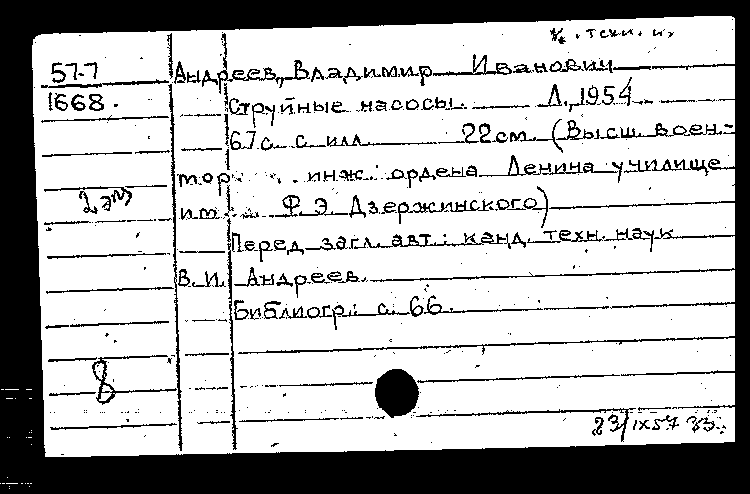 к. техн. н.
57-7 Андреев, Владимир Иванович
1668. Струйные насосы. Л., 1954
67 с. с илл. 22 см. (Высш. воен.-
мор. инж. ордена Ленина училище
2 экз
им. Ф. Э. Дзержинского)
Перед загл. авт.: канд. техн. наук
В. И. Андреев.
Библиогр.: с. 66.
8
23/IX 57